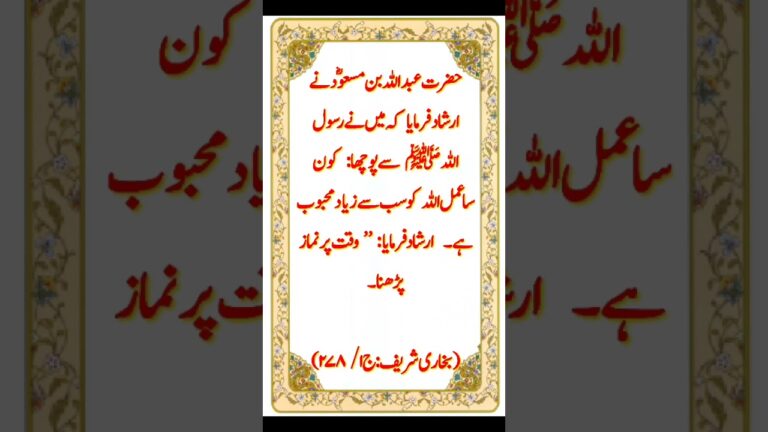 حضرت عبداللہ بن مسعودؓ نے
ارشاد فرمایا کہ میں نے رسول
اللہ ﷺ سے پوچھا: کون
سا عمل اللہ کو سب سے زیاد محبوب
ہے۔ ارشاد فرمایا: ”وقت پر نماز
پڑھنا۔
(بخاری شریف: ج۱/ ۲۷۸)